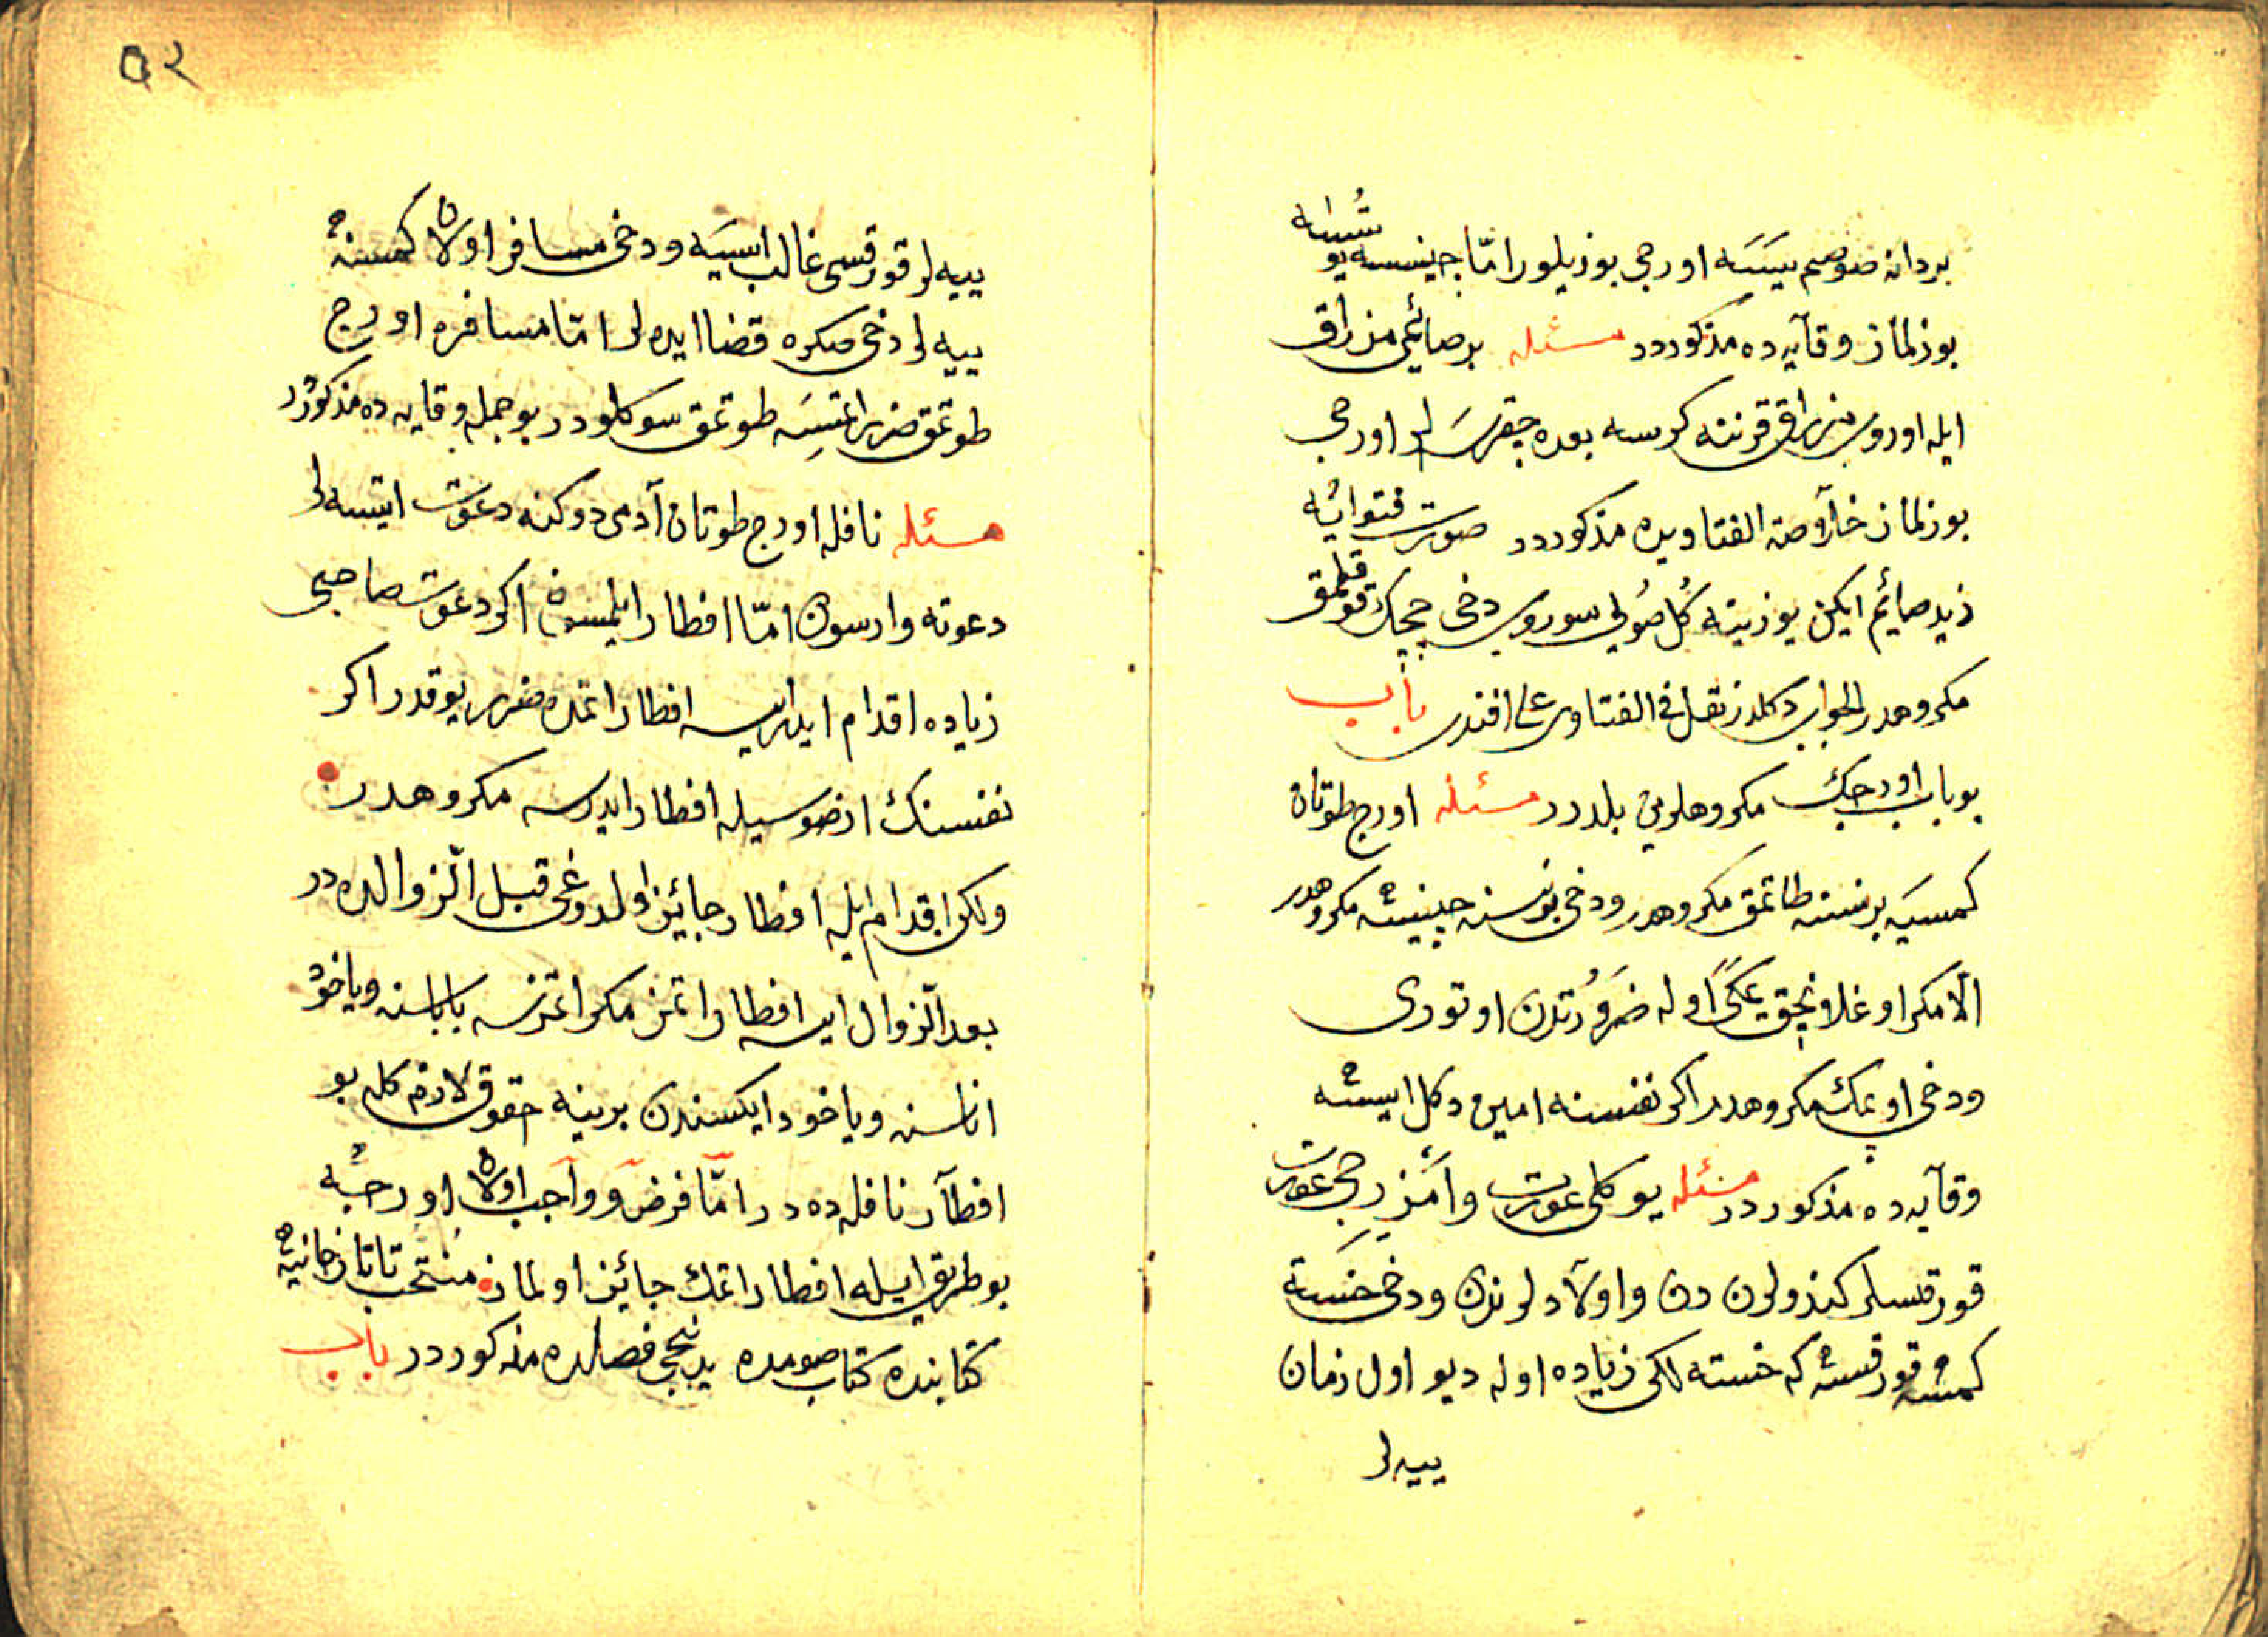 بردانه صوصم ییسَه اورجی بوزیلور امّا جینسه یوتسه
بوزلماز وقآیه ده مذکوردر مسئله بر صائمی مزراق
ایله اورو مزراقی قرننه کرسه بعده چقرسه لر اورجی
بوزلماز خلآصة الفتاویده مذکوردر صورت فتوائیه
زید صائم ایکن یوزینه کُل صُویی سوروب دخی چیچک قوقلمق
مکروهمدر الجواب دکلدر نقل فی الفتاوی علی افندی باب
بو باب اورجک مکروهلرین بلدرر مسئله اورج طوتان
کمسیه بر نسنه طاتمق مکروهدر ودخی بر نسنه چینمه مکروهدر
الّا مکر اوغلانجق یمکی اوله ضَرُورَتدن اوتوری
ودخی اوپمک مکروهدر اکر نفسنه امین دکل ایسه
وقآیه ده مذکوردر مسئله یوکلی عورت وامزرجی عورت
قورقسلر کندولرن دن واولاد لرندن ودخی خسته
کمسه قورقسه که خسته لکی زیاده اوله دیو اول زمان
ییه لر
٥٢
ییه لر قورقسی غالب ایسَه ودخی مسافر اولان کمسنه
ییه لر دخی صکره قضا ایده لر امّا مسافره اورج
طوتمق ضرر اتمسه طوتمق سوکلودر بو جمله وقایه ده مذکوردر
مسئله نافله اورج طوتان آدمی دوکنه دعوت ایتسه لر
دعوته وارسون امّا افطار ایلمسون اکر دعوت صاحبی
زیاده اقدام ایدرایسه افطار اتمده ضرر یوقدر اکر
نفسنک ارضوسیله افطار ایدرسه مکروهدر
ولکن اقدام ایله افطار جائیز اولدوغی قبل الزوالده در
بعد الزوال ایسه افطار اتمز مکر اتمزسه باباسنه ویاخود
اناسنه ویاخود ایکسندن برینه حقوق لازم کله بو
افطآر نافله ده در امّا فرض وواجب اولان اورجه
بو طریق ایله افطار اتمک جائیز اولماز منتخب تاتارخانیه
کتابنده کتاب صومده یدنجی فصلده مذکوردر باب